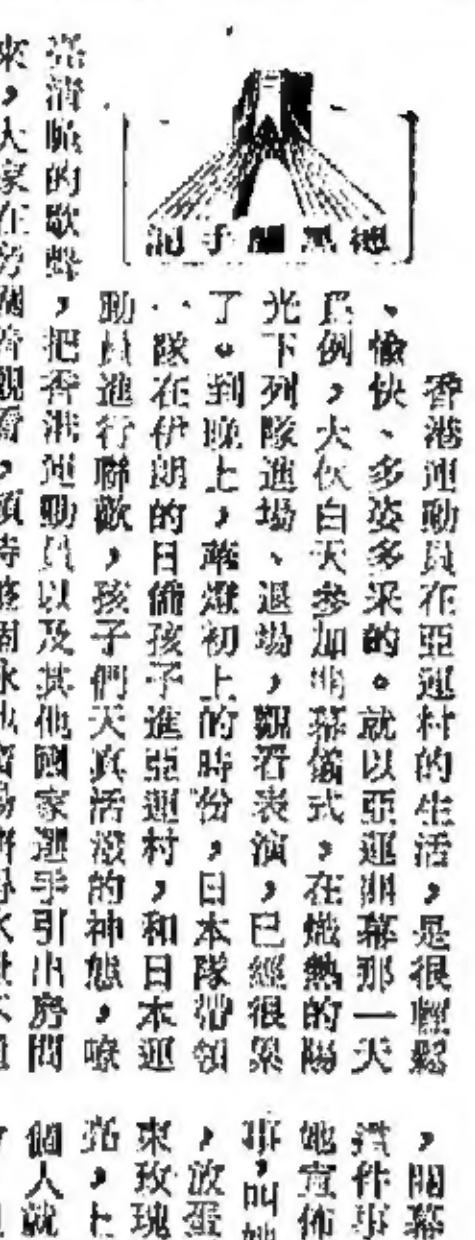 德黑蘭手記
香港運動員在亞運村的生活，是很輕鬆
、愉快、多姿多采的。就以亞運開幕那一天
爲例，大伙白天參加開幕儀式，在熾熱的陽
光下列隊進場、退場，觀看表演，已經很累
了。到晚上，華燈初上的時份，日本隊帶領
一隊在伊朗的日僑孩子進亞運村，和日本運
動員進行聯歡，孩子們天真活潑的神態，嘹
亮清脆的歌聲，把香港運動員以及其他國家選手引出房間
來，大家在旁
觀看，
，開幕
件事
她宣佈
事，叫她
，放蛋
束玫瑰
亮，上
個人就